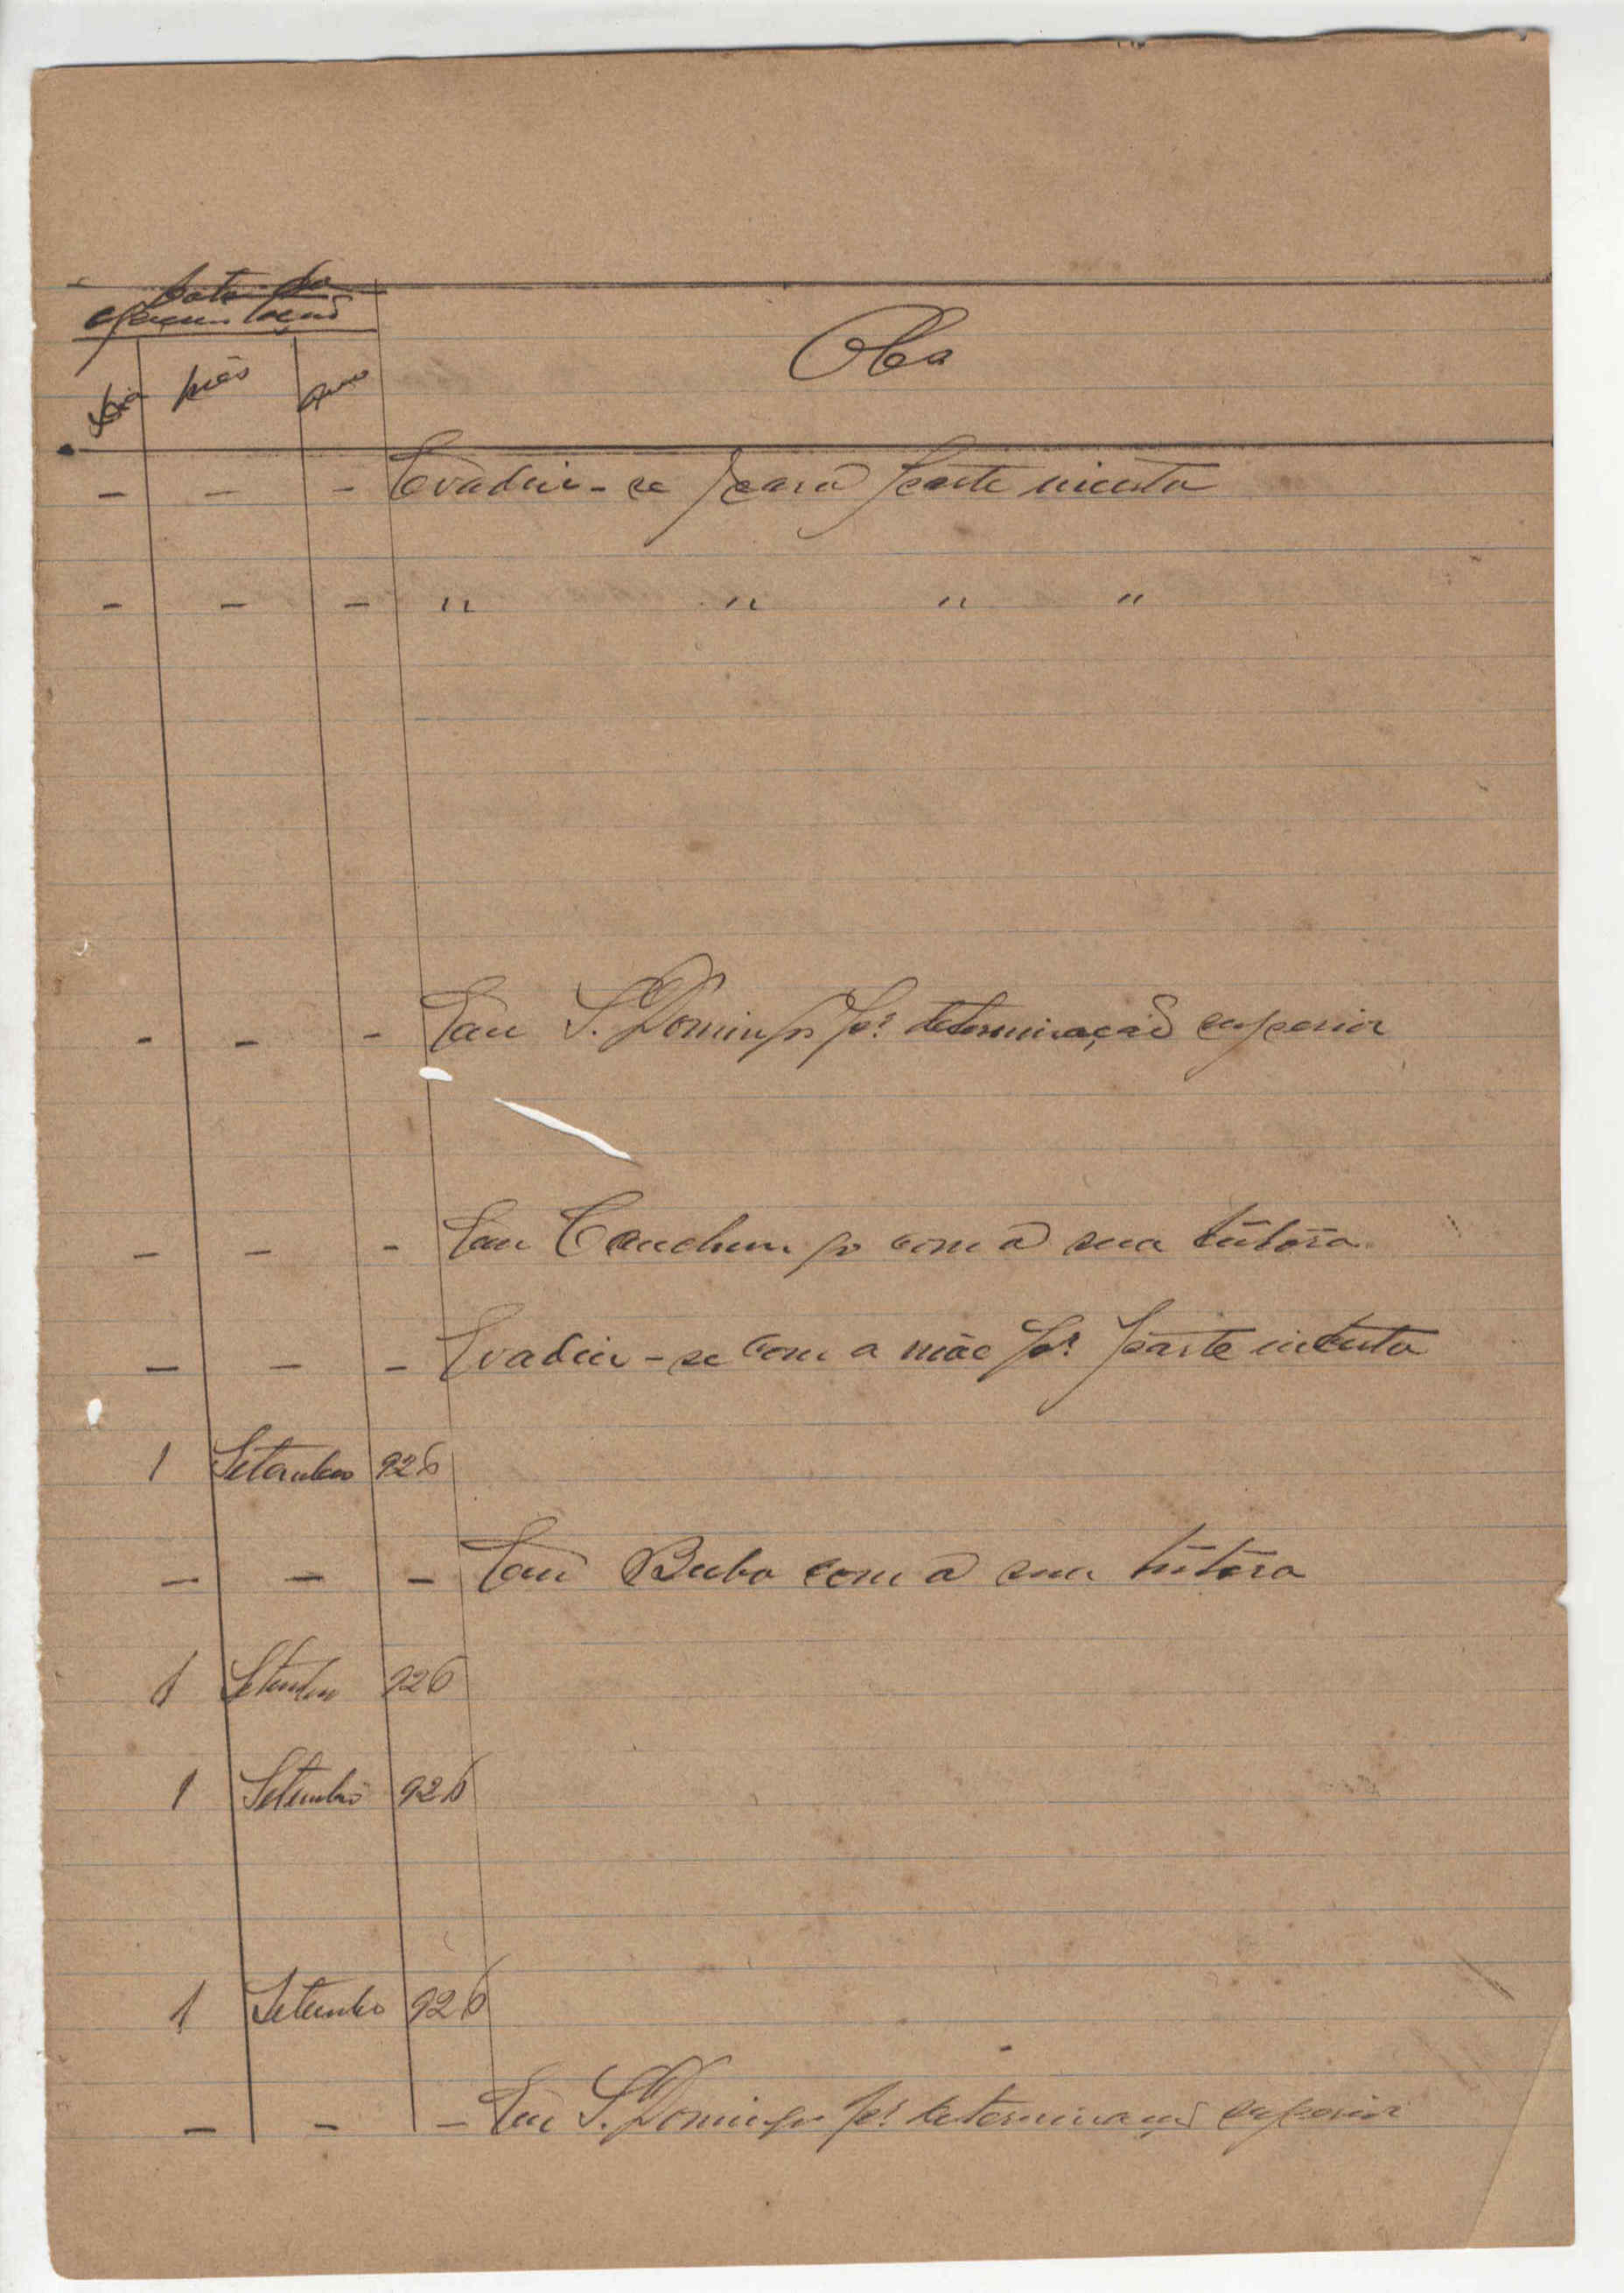 Data da
apresentação
Dia Mês Ano Obs
- - - Evadiu-se para parte incerta
- - - " " " "
- - - Em S. Domingos pr determinação superior
- - - Em Canchungo com a sua tutora
- - - Evadiu-se com a mãe pr parte incerta
1 Setembro 926
- - - Em Buba com a sua tutora
1 Setembro 926
1 Setembro 926
1 Setembro 926
- - - Em S. Domingos pr determinação superior